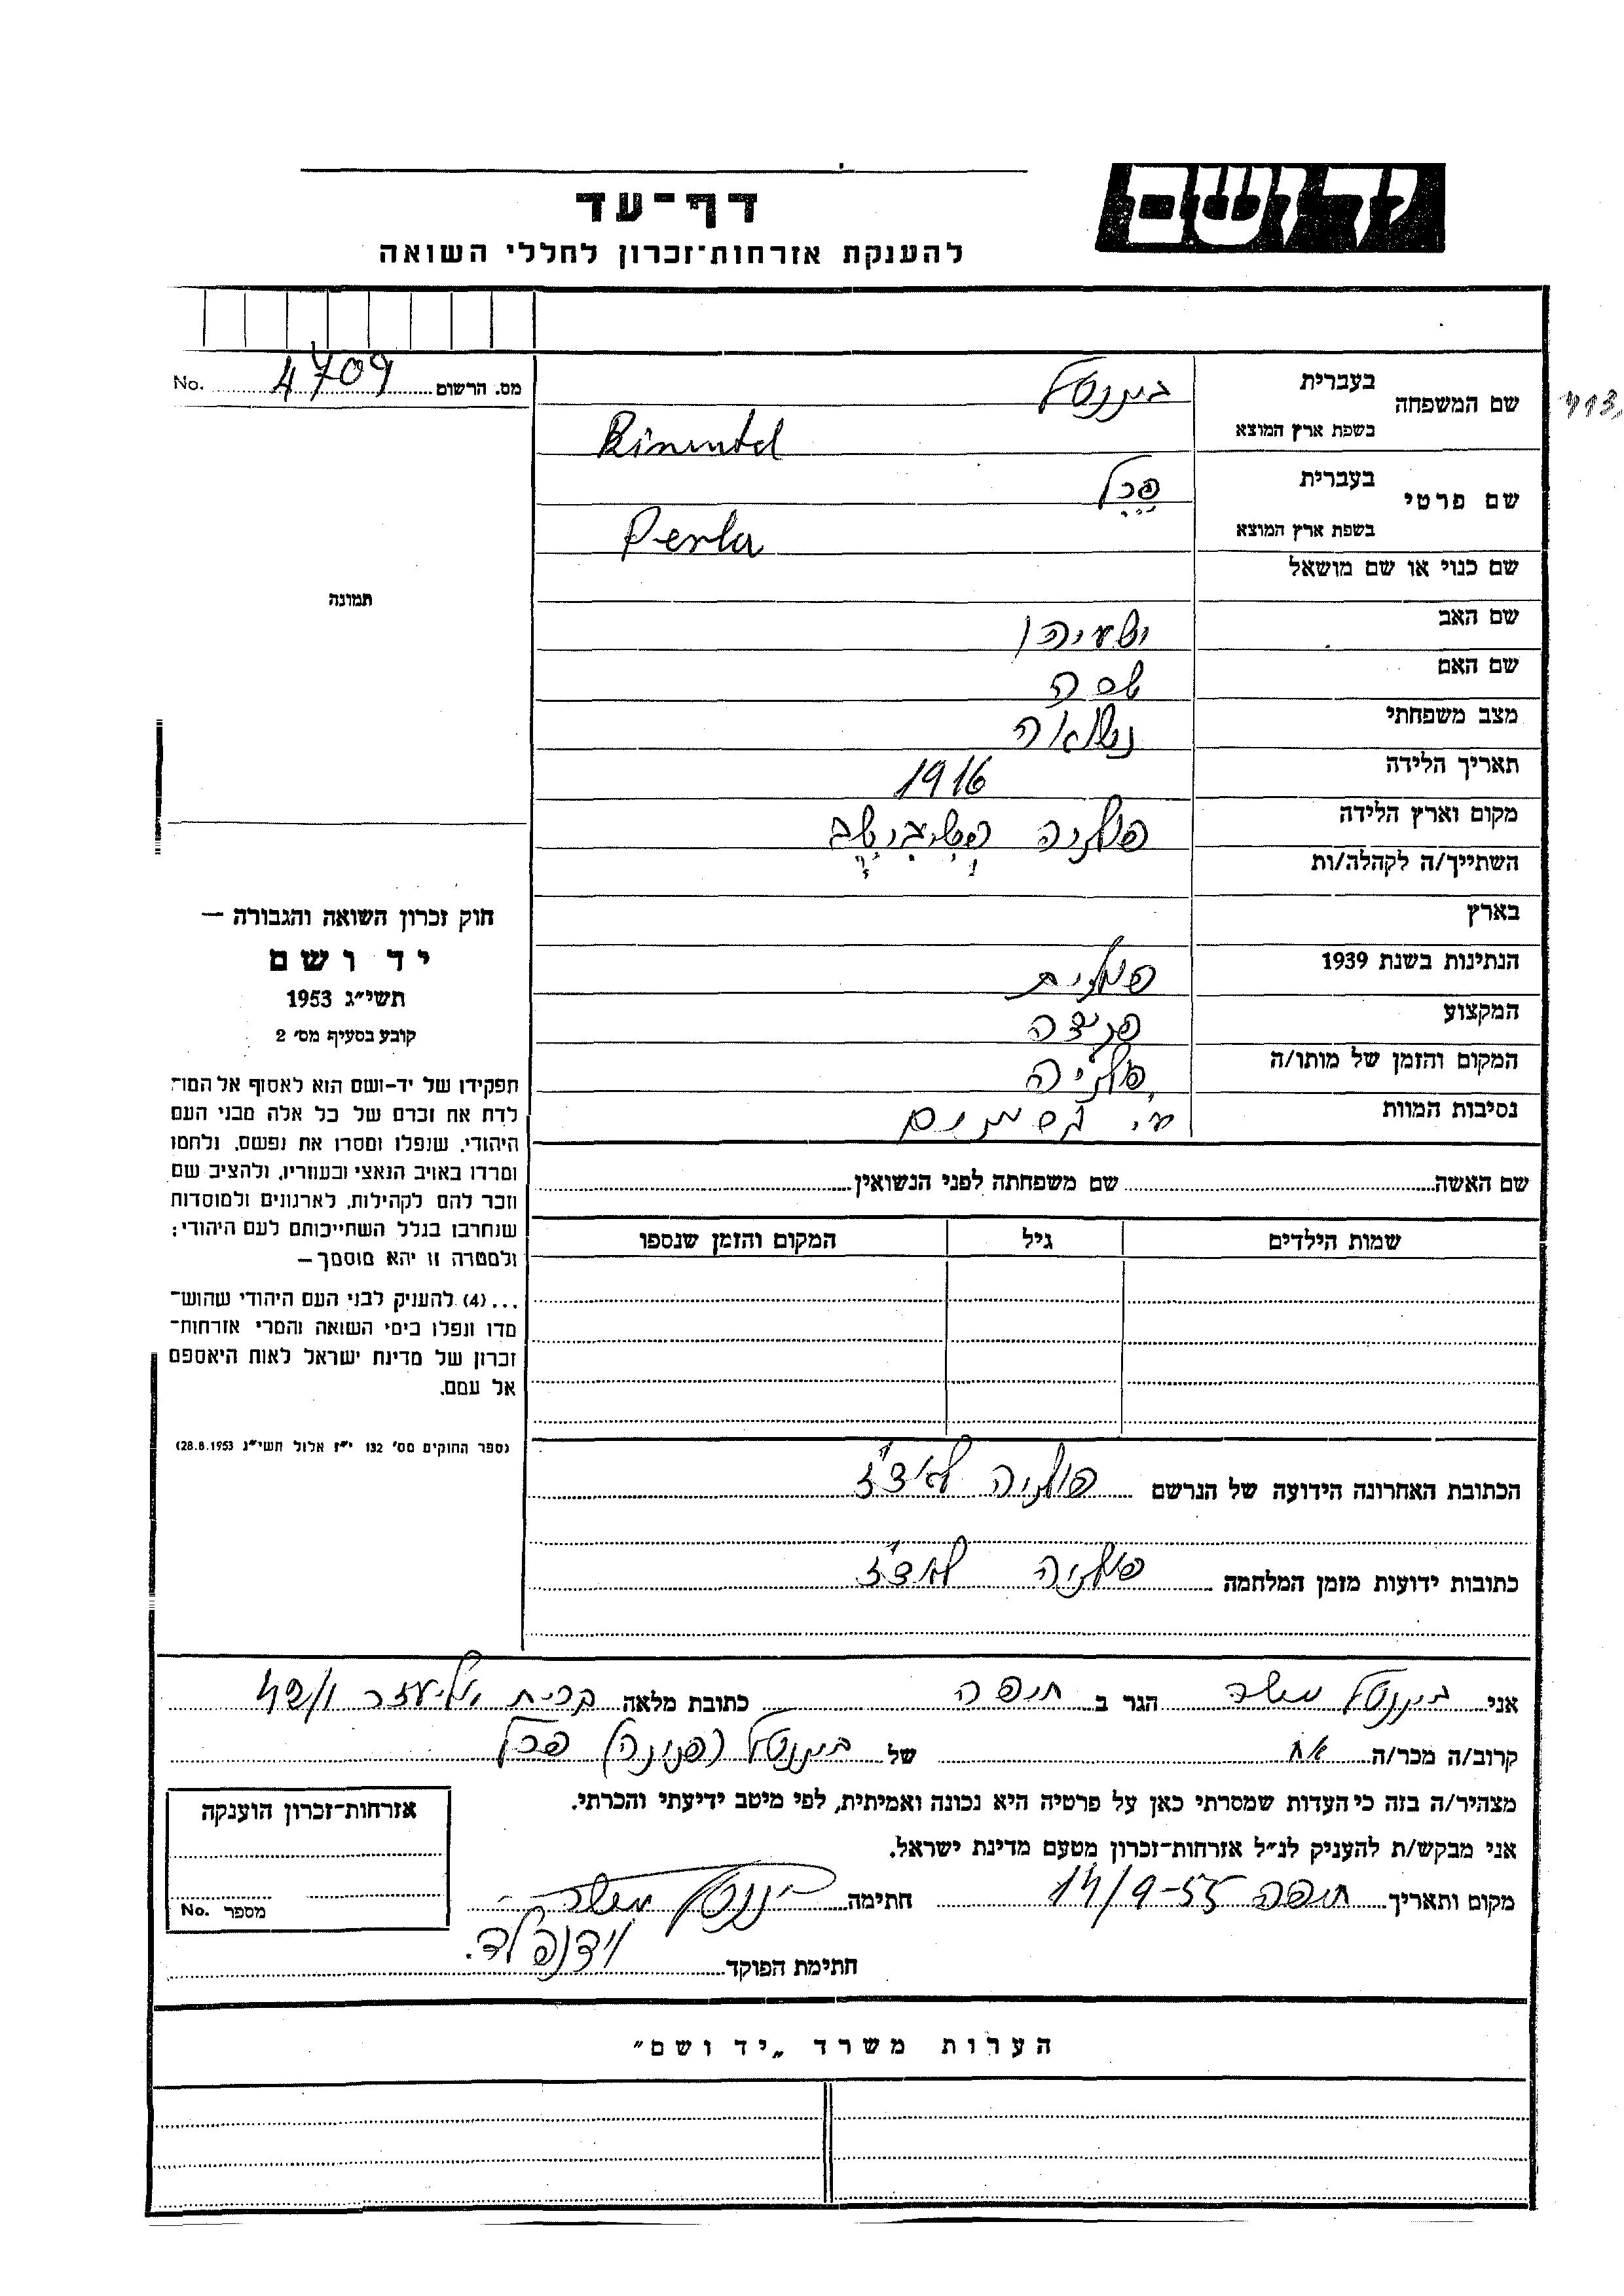 יד ושם
דף-עד
להענקת אזרחות-זכרון לחללי השואה
מס. הרשום 4709 No.
שם המשפחה
בעברית ביננטל
בשפת ארץ המוצא Binental
שם פרטי
בעברית פרל
בשפת ארץ המוצא Perla
שם כנוי או שם מושאל
שם האב ישעיהו
שם האם
מצב משפחתי נשואה
תאריך הלידה 1916
מקום וארץ הלידה פולניה
השתייך/ה לקהלה/ות
בארץ
הנתינות בשנת 1939 פולנית
המקצוע
המקום והזמן של מותו/ה פולניה
נסיבות המוות ע.י. גרמנים
תמונה
חוק זכרון השואה והגבורה —
יד ושם
תשי״ג 1953
קובע בסעיף מס׳ 2
תפקידו של יד-ושם הוא לאסוף אל המו־
לדת את זכרם של כל אלה מבני העם
היהודי, שנפלו ומסרו את נפשם, נלחמו
ומרדו באויב הנאצי ובעוזריו, ולהציב שם
וזכר להם לקהילות, לארגונים ולמוסדות
שנחרבו בגלל השתייכותם לעם היהודי;
ולמטרה זו יהא מוסמך —
...(4) להעניק לבני העם היהודי שהוש־
מדו ונפלו בימי השואה והמרי אזרחות־
זכרון של מדינת ישראל לאות היאספם
אל עמם.
(ספר החוקים מס׳ 132 י״ז אלול תשי״ג 28.8.1953)
שם האשה שם משפחתה לפני הנשואין
שמות הילדים גיל המקום והזמן שנספו
הכתובת האחרונה הידועה של הנרשם פולניה לודז׳
כתובות ידועות מזמן המלחמה פולניה לודז׳
אני ביננטל משה הגר ב חיפה כתובת מלאה קרית אליעזר
קרוב/ה מכר/ה אח של ביננטל (פנינה) פרל
מצהיר/ה בזה כי העדות שמסרתי כאן על פרטיה היא נכונה ואמיתית, לפי מיטב ידיעתי והכרתי.
אני מבקש/ת להעניק לנ״ל אזרחות-זכרון מטעם מדינת ישראל.
מקום ותאריך חיפה 14/9-55 חתימה ביננטל משה
חתימת הפוקד
אזרחות-זכרון הוענקה
מספר No.
הערות משרד „יד ושם״